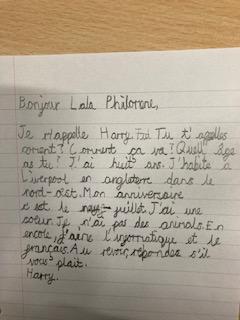 Bonjour Lala Philomene,
Je m'appelle Harry. Et Tu t'apelles
coment? Comment ça va? Quell âge
as tu? J'ai huit ans. J'habite à
Liverpool en angleterre dans le
nord-oest. Mon anniversaire
c'est le juillet. J'ai une
soeur. Je n'ai pas des animals. En
encole, j'aime l'informatique et le
français. Au revoir, repondes s'il
vous plait.
Harry.